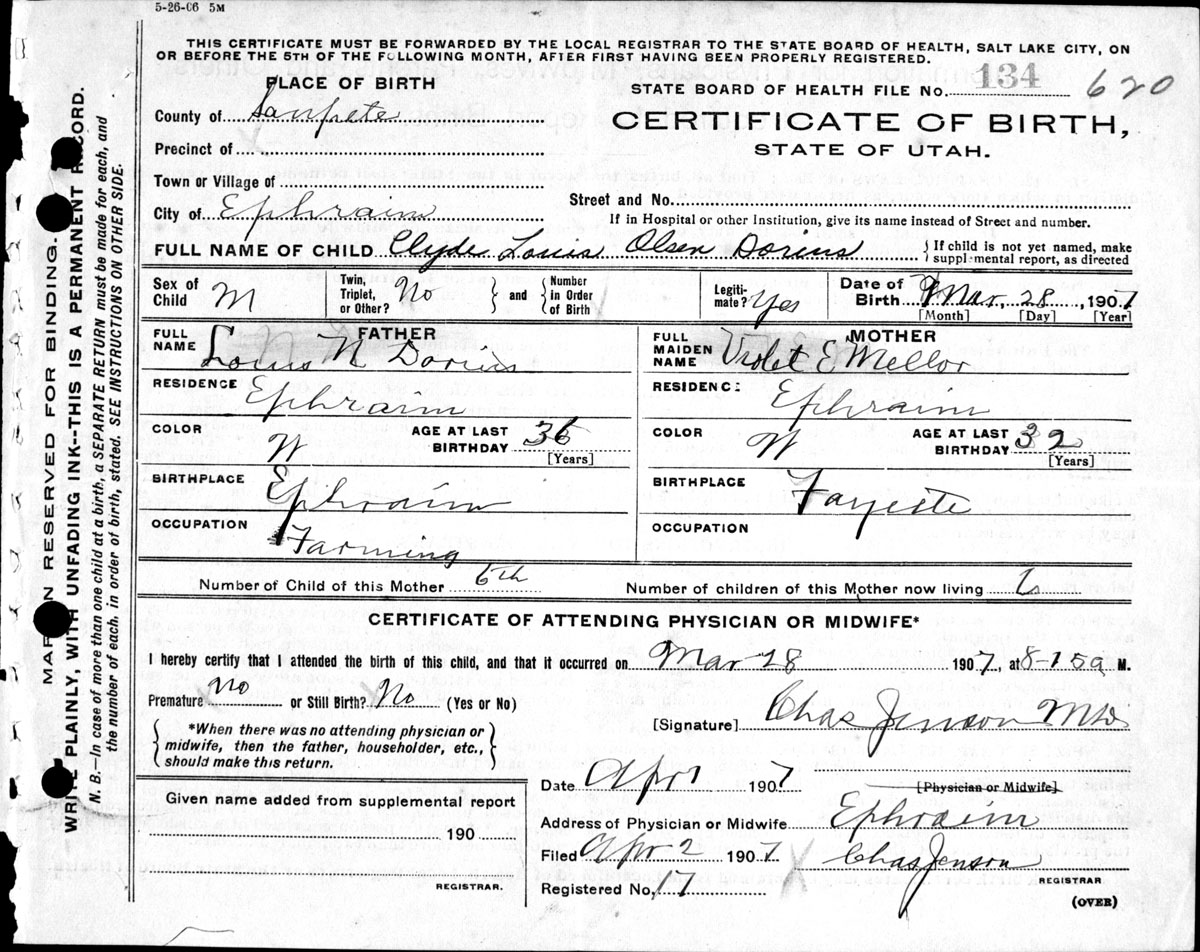 5-26-06 5M
THIS CERTIFICATE MUST BE FORWARDED BY THE LOCAL REGISTRAR TO THE STATE BOARD OF HEALTH, SALT LAKE CITY, ON
OR BEFORE THE 5TH OF THE FOLLOWING MONTH, AFTER FIRST HAVING BEEN PROPERLY REGISTERED.
PLACE OF BIRTH
STATE BOARD OF HEALTH FILE No. 134 620
County of Sanpete
CERTIFICATE OF BIRTH,
STATE OF UTAH.
Precinct of
Town or Village of
Street and No.
City of Ephraim
If in Hospital or other Institution, give its name instead of Street and number.
FULL NAME OF CHILD Clyde Louis Olsen Dorius
{If child is not yet named, make
supplemental report, as directed
Sex of Child M
Twin, Triplet, or Other? No } and { Number in Order of Birth
Legiti-mate? Yes
Date of Birth Mar, 28, 1907
[Month] [Day] [Year]
FATHER
FULL NAME Louis N Dorius
RESIDENCE Ephraim
COLOR W AGE AT LAST BIRTHDAY 36 [Years]
BIRTHPLACE Ephraim
OCCUPATION Farming
MOTHER
FULL MAIDEN NAME Violet E Mellor
RESIDENCE Ephraim
COLOR W AGE AT LAST BIRTHDAY 32 [Years]
BIRTHPLACE Fayette
OCCUPATION
Number of Child of this Mother 6th
Number of children of this Mother now living 6
CERTIFICATE OF ATTENDING PHYSICIAN OR MIDWIFE*
I hereby certify that I attended the birth of this child, and that it occurred on Mar 28 1907, at 8-15a M.
Premature No or Still Birth? No (Yes or No)
[Signature] Chas Jenson MD
{*When there was no attending physician or
midwife, then the father, householder, etc.,
should make this return.}
Date Apr 1 1907
[Physician or Midwife]
Given name added from supplemental report
190
REGISTRAR.
Address of Physician or Midwife Ephraim
Filed Apr 2 1907 Chas Jenson
REGISTRAR
Registered No. 17
(OVER)
MARGIN RESERVED FOR BINDING.
WRITE PLAINLY, WITH UNFADING INK--THIS IS A PERMANENT RECORD.
N. B.—In case of more than one child at a birth, a SEPARATE RETURN must be made for each, and
the number of each, in order of birth, stated. SEE INSTRUCTIONS ON OTHER SIDE.